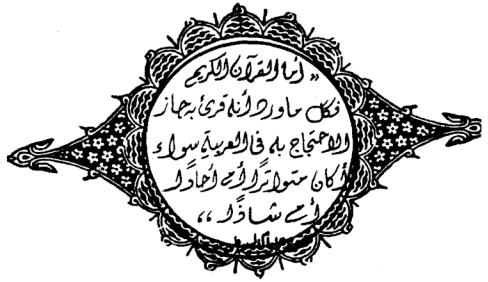 « أما القرآن الكريم
فكل ما ورد أنه قرئ به جاز
الاحتجاج به في العربية سواء
أكان متواترًا أم أحادًا
أم شاذًا ،،